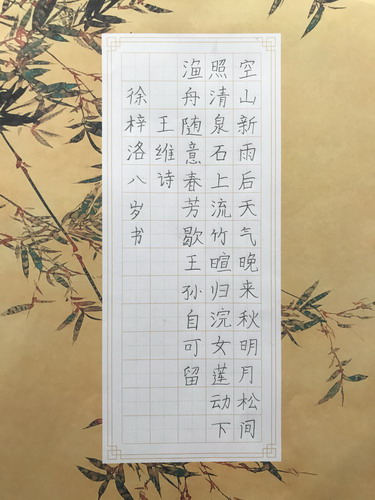 空山新雨后天气晚来秋明月松间
照清泉石上流竹暄归浣女莲动下
渔舟随意春芳歇王孙自可留
王维诗
徐梓洛八岁书